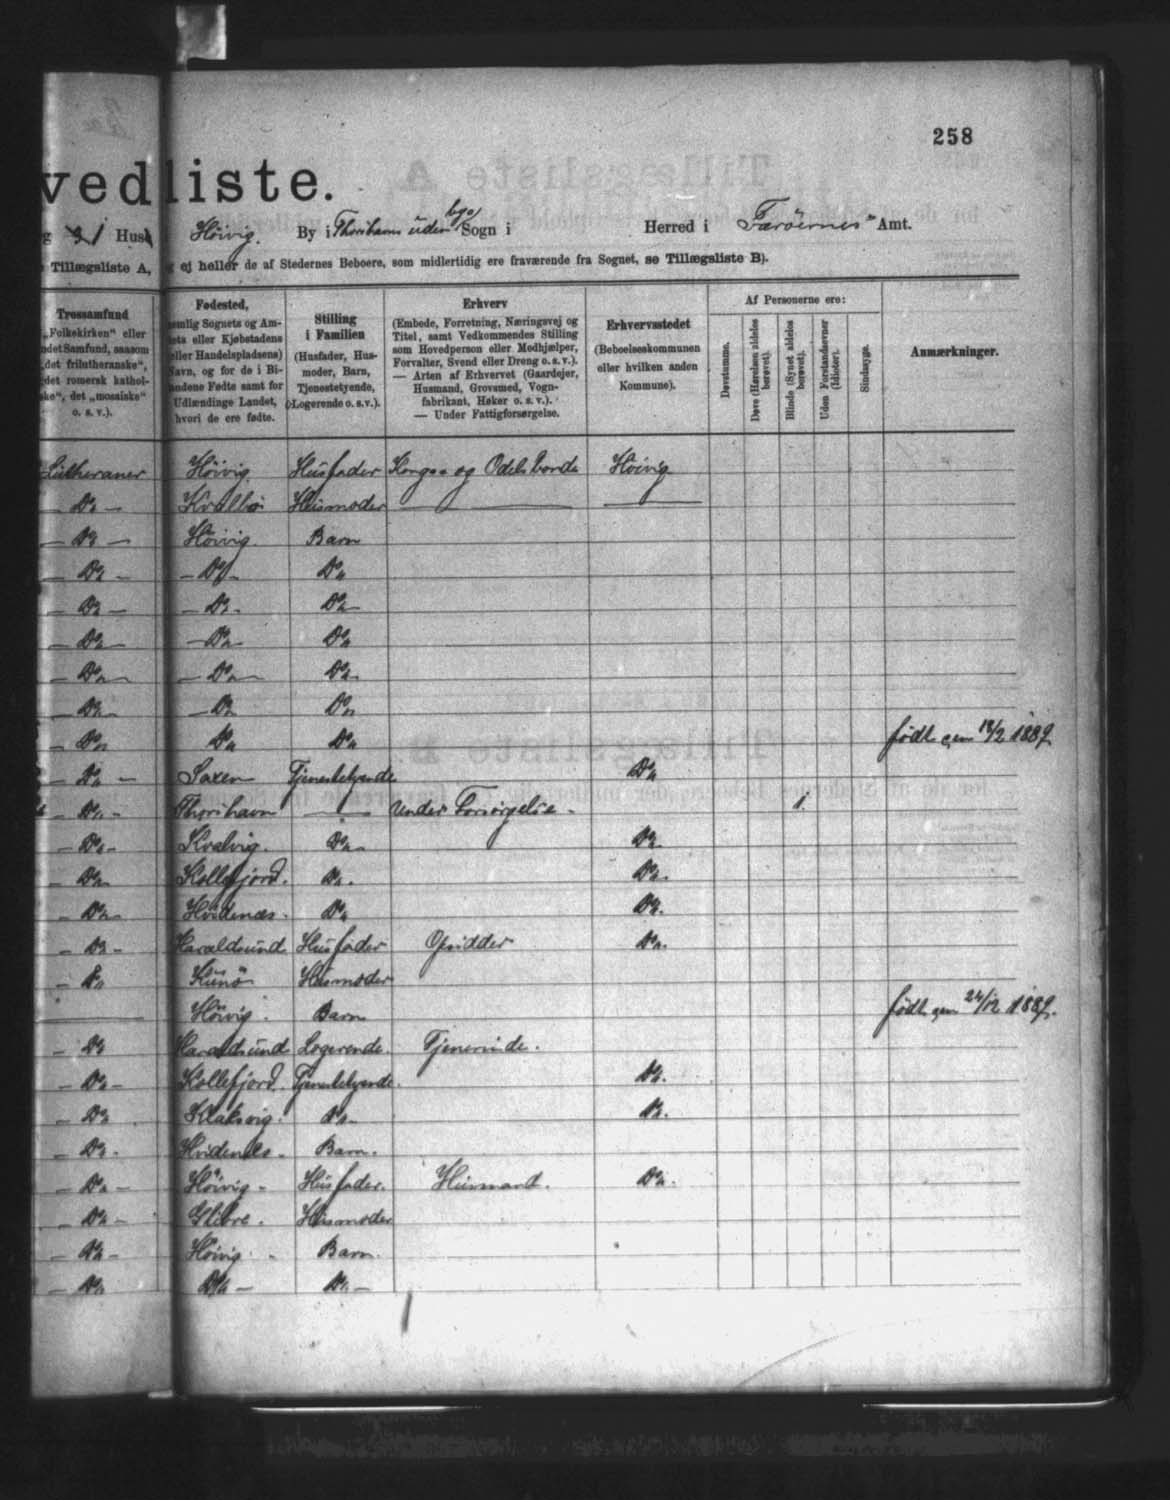 258
vedliste.
Huse Höivig. By i Thorshavns uden bys Sogn i Herred i Færöernes Amt.
Tillægsliste A, ej heller de af Stedernes Beboere, som midlertidig ere fraværende fra Sognet, se Tillægsliste B).
Trossamfund
„Folkekirken“ eller
ndet Samfund, saasom
„det frilutheranske“,
„det romersk kathol-
ske“, det „mosaiske“
o. s. v.).
Fødested,
nemlig Sognets og Am-
tets eller Kjøbstadens
eller Handelspladsens)
Navn, og for de i Bi-
landene Fødte samt for
Udlændinge Landet,
hvori de ere fødte.
Stilling
i Familien
(Husfader, Hus-
moder, Barn,
Tjenestetyende,
Logerende o. s. v.).
Erhverv
(Embede, Forretning, Næringsvej og
Titel, samt Vedkommendes Stilling
som Hovedperson eller Medhjælper,
Forvalter, Svend eller Dreng o. s. v.).
— Arten af Erhvervet (Gaardejer,
Husmand, Grovsmed, Vogn-
fabrikant, Høker o. s. v.).
— Under Fattigforsørgelse.
Erhvervsstedet
(Beboelseskommunen
eller hvilken anden
Kommune).
Af Personerne ere:
Døvstumme.
Døve (Hørelsen aldeles
berøvet).
Blinde (Synet aldeles
berøvet).
Uden Forstandsevner
(Idioter).
Sindssyge.
Anmærkninger.
Lutheraner Höivig Husfader Konges og Odelsbonde Höivig
— Do — Kvalbö Husmoder
— Do — Höivig Barn
— Do — — Do — Do
— Do — — Do — Do
— Do — — Do — Do
— Do — — Do — Do
— Do — — Do Do
— Do Do Do født den 12/2 1889
— Do — Saxen Tjenestetyende Do
— Do — Thorshavn — Under Forsörgelse. 1.
— Do — Kvalvig. Do Do
— Do Kollefjord. Do. Do.
— Do — Hvidenæs. Do Do.
— Do — Haraldsund Husfader Opsidder Do.
— Do Kunö Husmoder
Höivig. Barn født den 24/12 1889.
— Do Haraldsund Logerende. Tjenerinde.
— Do — Kollefjord Tjenestetyende. Do.
— Do Klaksvig. Do Do.
— Do. Hvidenæs. Barn.
— Do — Höivig Husfader. Husmand. Do.
— Do — Glibre. Husmoder
— Do — Höivig Barn.
— Do Do — Do —